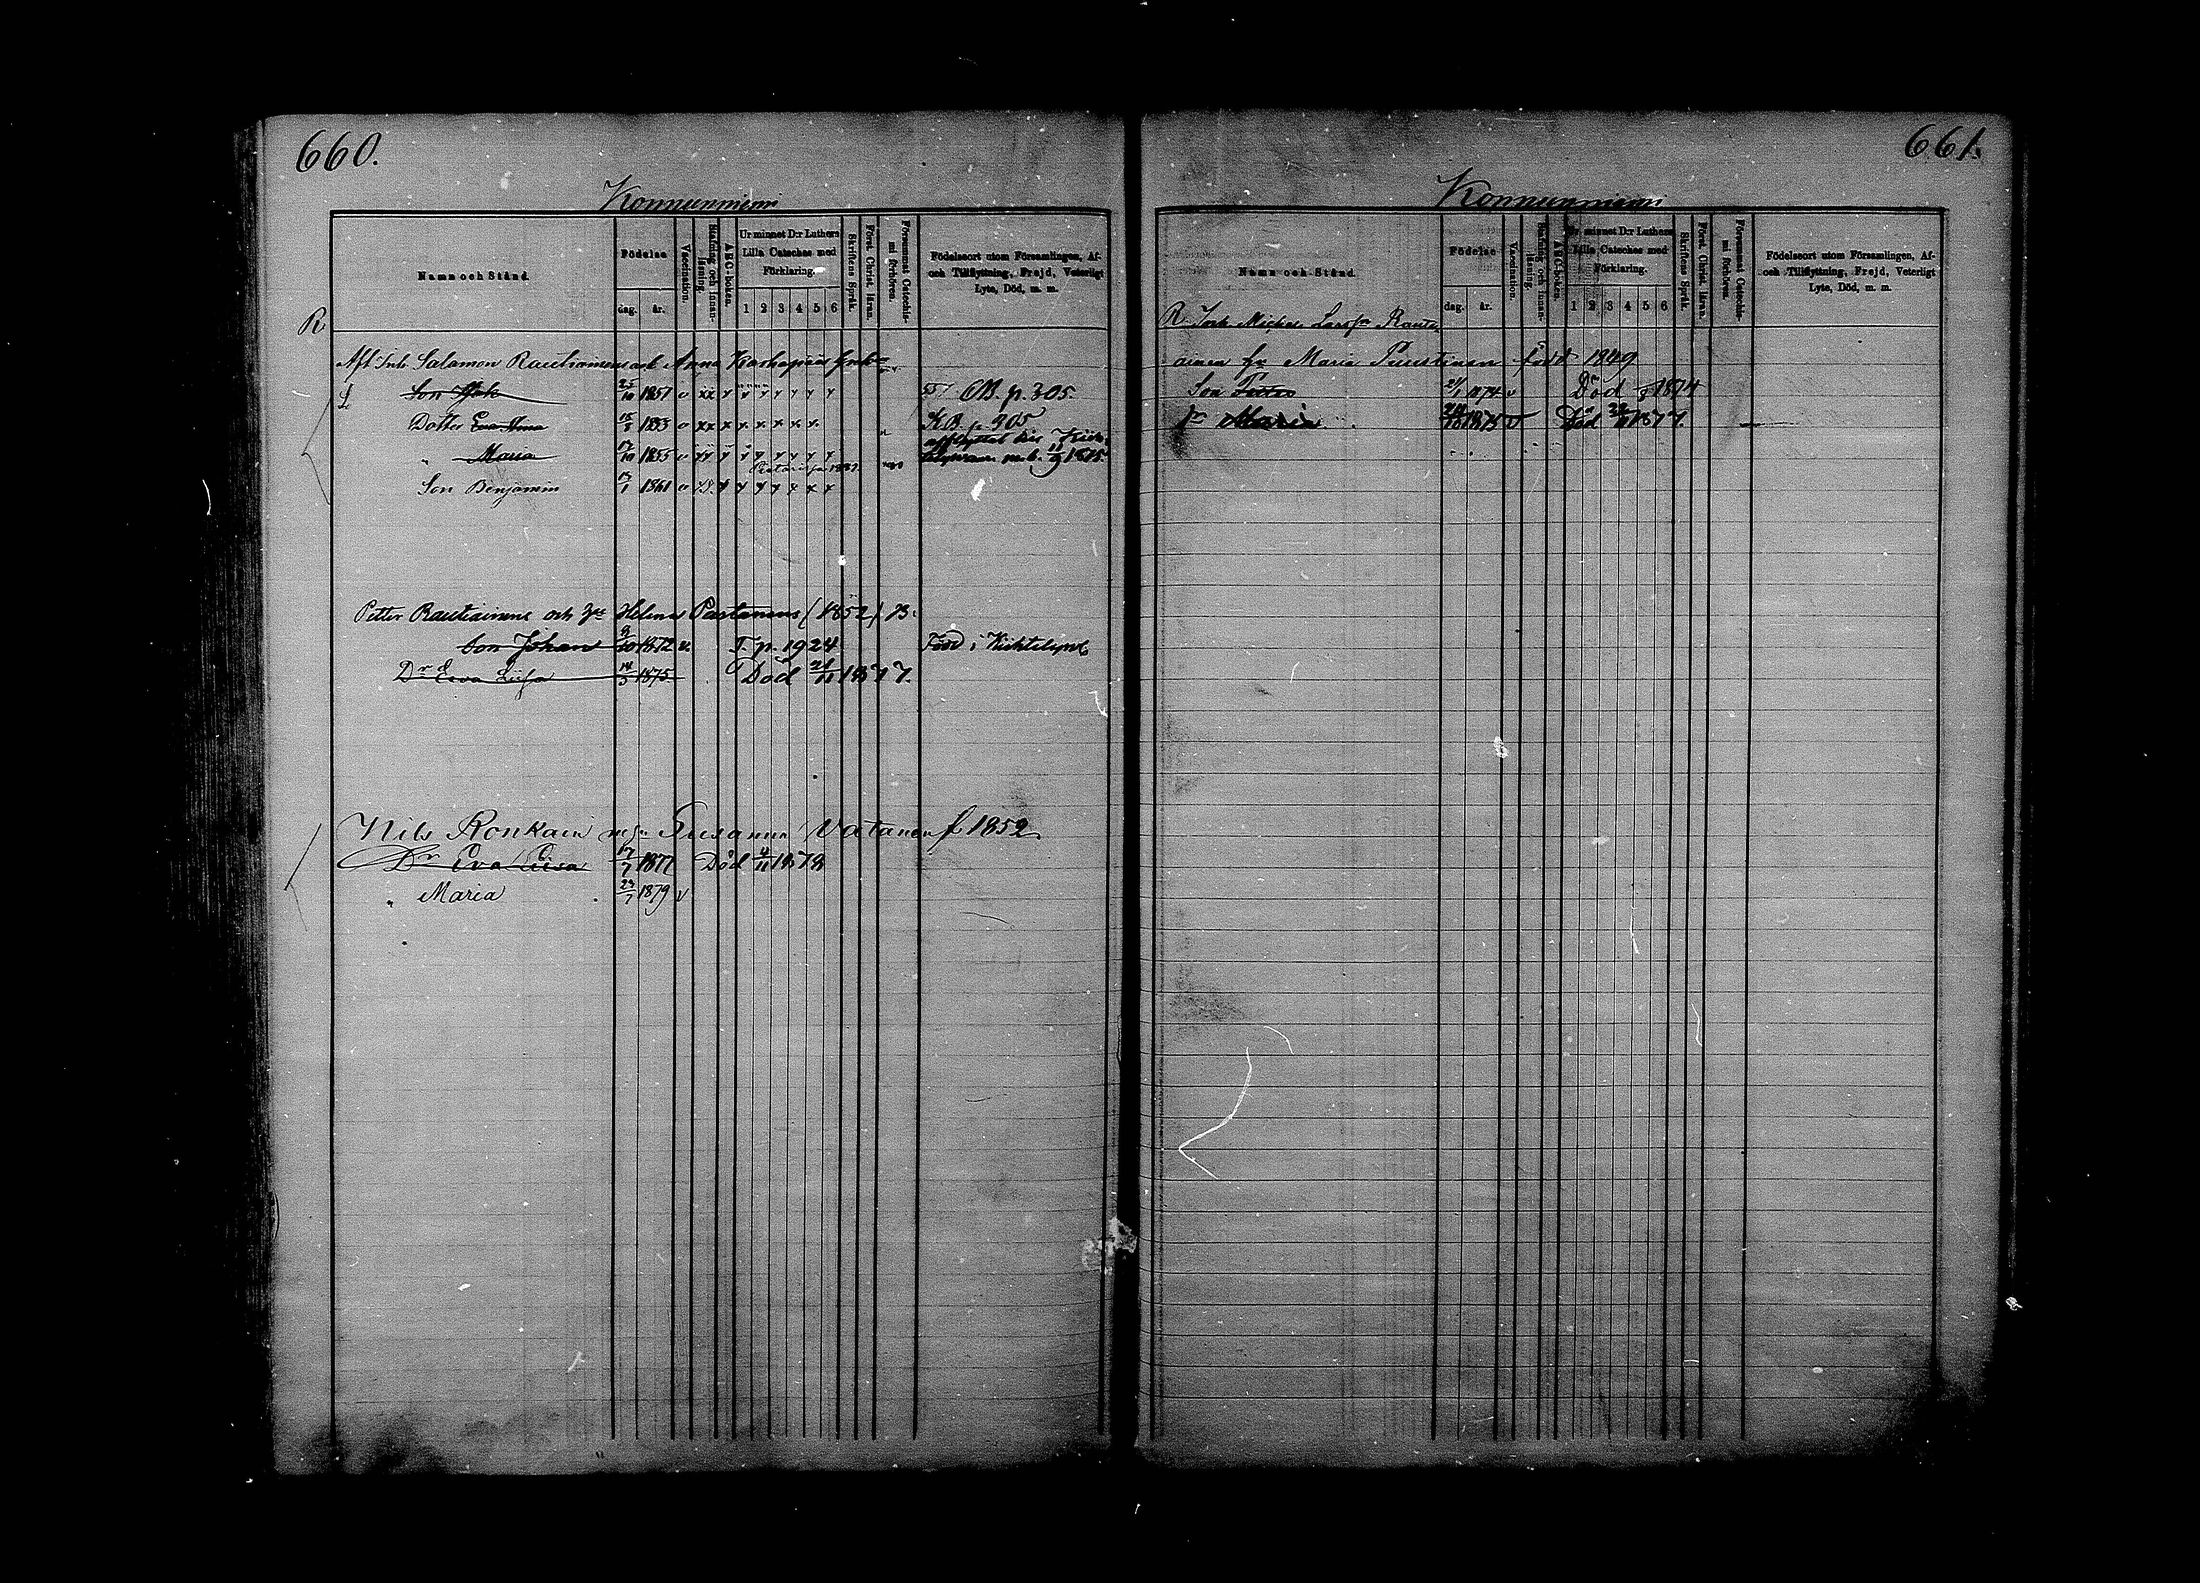 660.
Konnunniemi
Namn och Stånd.
Födelse
dag. år.
Vaccination.
Stafning och Innanläsning.
A B C-boken.
Ur minnet D:r Luthers Lilla Cateches med Förklaring.
1 2 3 4 5 6
Skriftens Språk.
Först. Christ. läran.
Försummat Catechismi förhören.
Födelseort utom Församlingen, Af- och Tillflyttning, Frejd, Veterligt Lyte, Död, m. m.
R
Afl Inh Salamon Rautiainens och Anna
Son 25/10 1851 v B. p. 305.
Dotter Eva 15/5 1853 v K B p 305
" Maria 17/10 1855 v 1875.
Son Benjamin 17/1 1861 v
Petter Rautiainens och Helena (1852) B.
Son Johan 9/10 1872 v. T. p. 1924 Född i
Dr Eva Lisa 14/3 1875. Död 21/11 1877.
Nils Ronkain Susanna Vatanen f 1852.
Dr Eva Lisa 17/7 1877 Död 4/11 1878
" Maria 23/7 1879 v
661.
Konnunniemi
Namn och Stånd.
Födelse
dag. år.
Vaccination.
Stafning och Innanläsning.
A B C-boken.
Ur minnet D:r Luthers Lilla Cateches med Förklaring.
1 2 3 4 5 6
Skriftens Språk.
Först. Christ. läran.
Försummat Catechismi förhören.
Födelseort utom Församlingen, Af- och Tillflyttning, Frejd, Veterligt Lyte, Död, m. m.
R. Inh Michel Larsson Rauti
ainen Maria Puustinen född 1849
Son Petter 21/1 1874 v Död 1874
Maria 1875 Död 1877.